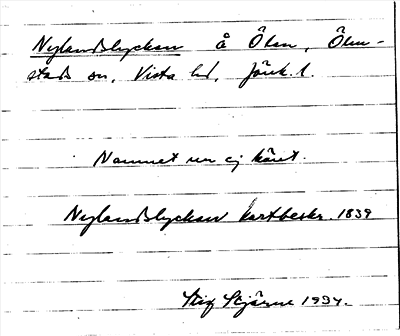 Nylandslyckan å Ölen, Ölm-
stads sn, Vista hd, Jönk. l.
Namnet nu ej känt.
Nylandslyckan kartbeskr. 1839
Stig Stjärne 1934.